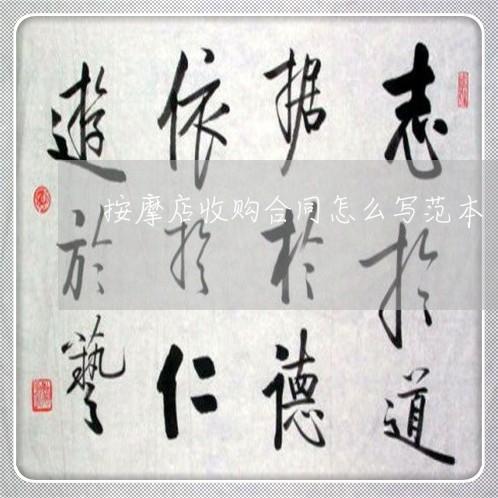 志於道
据於德
依於仁
遊於藝
按摩店收购合同怎么写范本